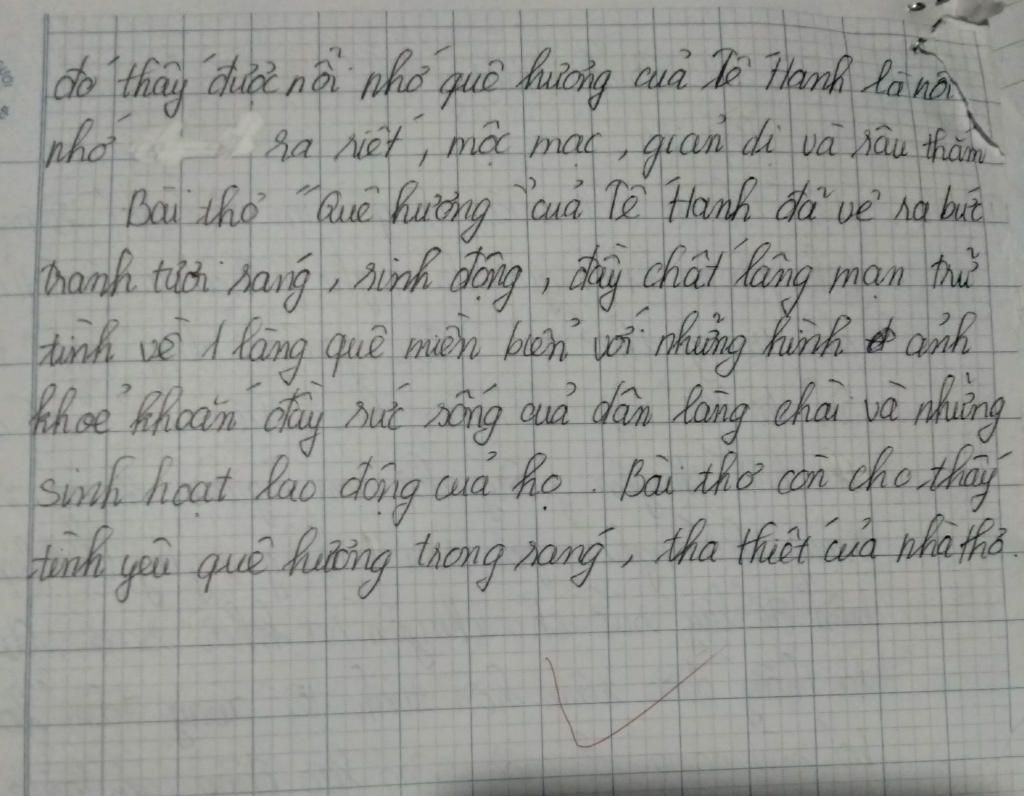 đó thấy được nỗi nhớ quê hương của Tế Hanh là nỗi
nhớ ra riết, mộc mạc, giản dị và sâu thẳm
Bài thơ "Quê hương" của Tế Hanh đã vẽ ra bức
tranh tươi sáng, sinh động, đầy chất lãng mạn trữ
tình về 1 làng quê miền biển với những hình ảnh
khoẻ khoắn đầy sức sống của dân làng chài và những
sinh hoạt lao động của họ. Bài thơ còn cho thấy
tình yêu quê hương trong sáng, tha thiết của nhà thơ.